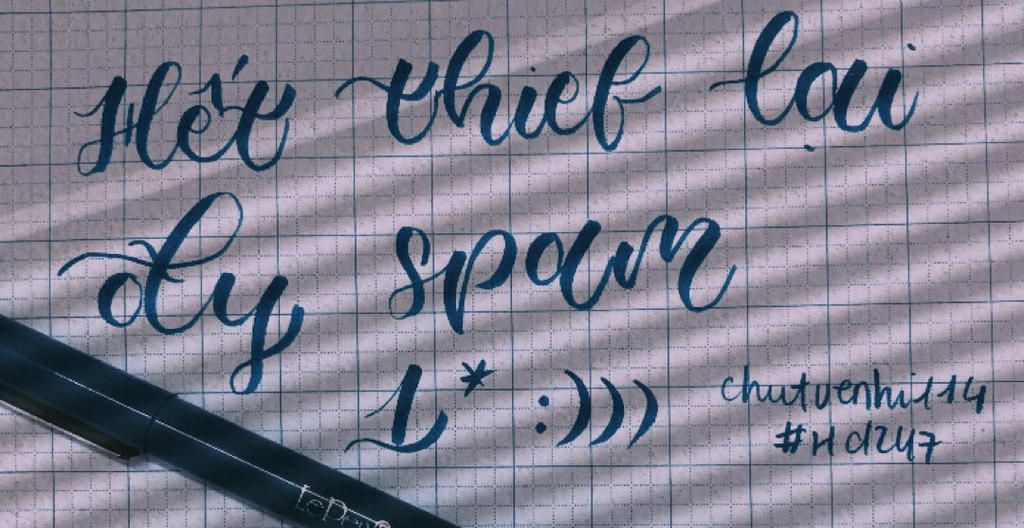 Hết thief lại
đy spam
1* :)))
chutuenhi114
#Hd247
LePen